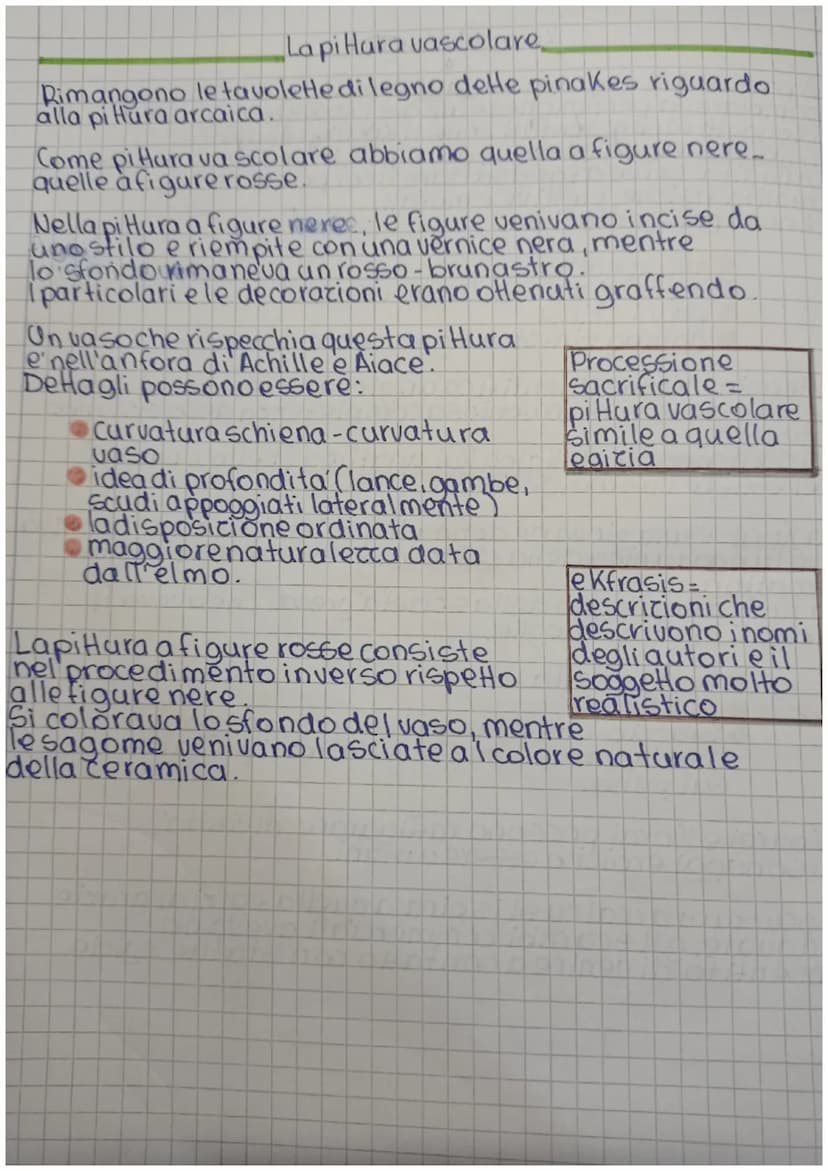 La pittura vascolare
Rimangono le tavolette di legno dette pinakes riguardo
alla pittura arcaica.
Come pittura vascolare abbiamo quella a figure nere -
quelle a figure rosse.
Nella pittura a figure nere, le figure venivano incise da
uno stilo e riempite con una vernice nera, mentre
lo sfondo rimaneva un rosso-brunastro.
I particolari e le decorazioni erano ottenuti graffendo.
Un vaso che rispecchia questa pittura
e' nell'anfora di Achille e Aiace.
Dettagli possono essere:
curvatura schiena - curvatura
vaso
idea di profondita' (lance, gambe,
scudi appoggiati lateralmente)
la disposizione ordinata
maggiore naturalezza data
dall'elmo.
Processione
sacrificale =
pittura vascolare
simile a quella
egizia
ekfrasis =
descrizioni che
descrivono i nomi
degli autori e il
soggetto molto
realistico
La pittura a figure rosse consiste
nel procedimento inverso rispetto
alle figure nere.
Si colorava lo sfondo del vaso, mentre
le sagome venivano lasciate al colore naturale
della ceramica.